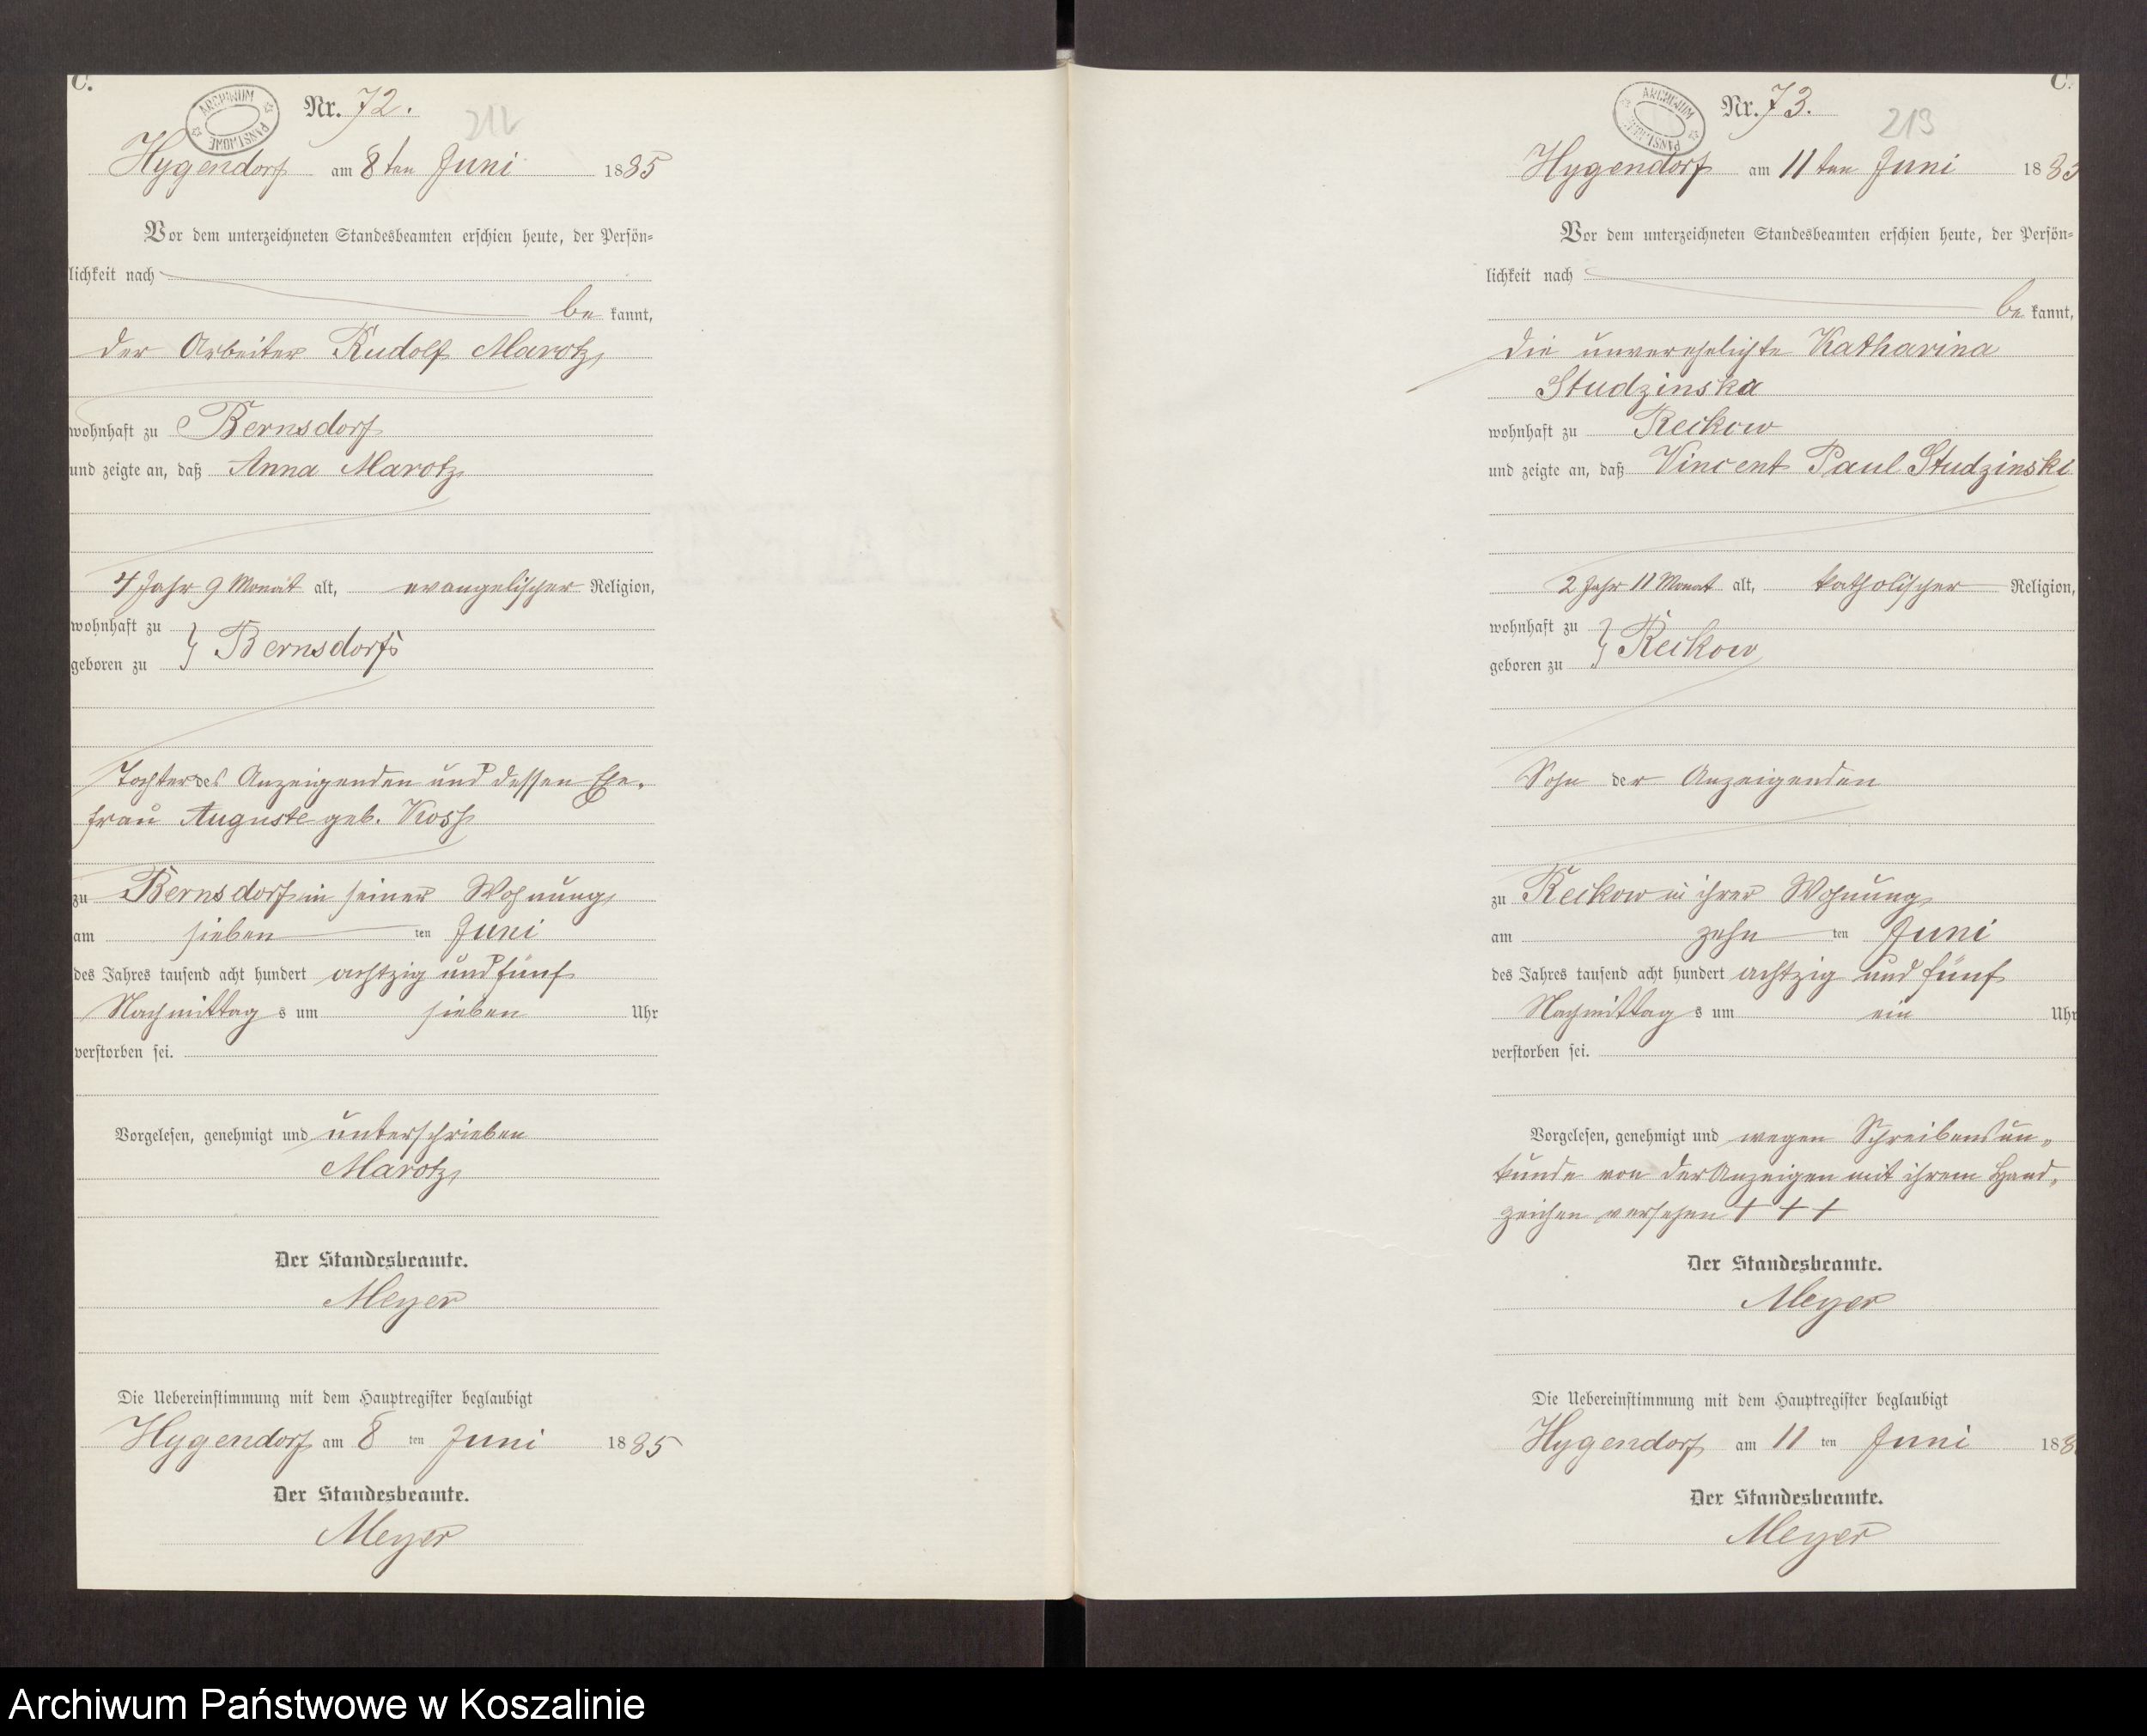 C.
Nr. 72.
212
ARCHIWUM PAŃSTWOWE
Hygendorf am 8ten Juni 1885
Vor dem unterzeichneten Standesbeamten erschien heute, der Persön=
lichkeit nach
be kannt,
der Arbeiter Rudolf Marotz
wohnhaft zu Bernsdorf
und zeigte an, daß Anna Marotz
4 Jahr 9 Monat alt, evangelischer Religion,
wohnhaft zu
geboren zu } Bernsdorf
Tochter des Anzeigenden und dessen Ehe-
frau Auguste geb. Koss
zu Bernsdorf in seiner Wohnung
am sieben ten Juni
des Jahres tausend acht hundert achtzig und fünf
Nachmittag s um sieben Uhr
verstorben sei.
Vorgelesen, genehmigt und unterschrieben
Marotz
Der Standesbeamte.
Meyer
Die Uebereinstimmung mit dem Hauptregister beglaubigt
Hygendorf am 8 ten Juni 1885
Der Standesbeamte.
Meyer
C.
Nr. 73.
213
ARCHIWUM PAŃSTWOWE
Hygendorf am 11ten Juni 1885
Vor dem unterzeichneten Standesbeamten erschien heute, der Persön=
lichkeit nach
be kannt,
die unverehelichte Katharina
Studzinska
wohnhaft zu Reckow
und zeigte an, daß Vincent Paul Studzinski
2 Jahr 11 Monat alt, katholischer Religion,
wohnhaft zu
geboren zu } Reckow
Sohn der Anzeigenden
zu Reckow in ihrer Wohnung
am zehn ten Juni
des Jahres tausend acht hundert achtzig und fünf
Nachmittag s um ein Uhr
verstorben sei.
Vorgelesen, genehmigt und wegen Schreibensun-
kunde von der Anzeigen mit ihrem Hand-
zeichen versehen + + +
Der Standesbeamte.
Meyer
Die Uebereinstimmung mit dem Hauptregister beglaubigt
Hygendorf am 11 ten Juni 188
Der Standesbeamte.
Meyer
Archiwum Państwowe w Koszalinie